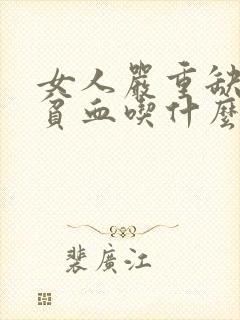 女人嚴重缺
貧血喫什麼
裴廣江